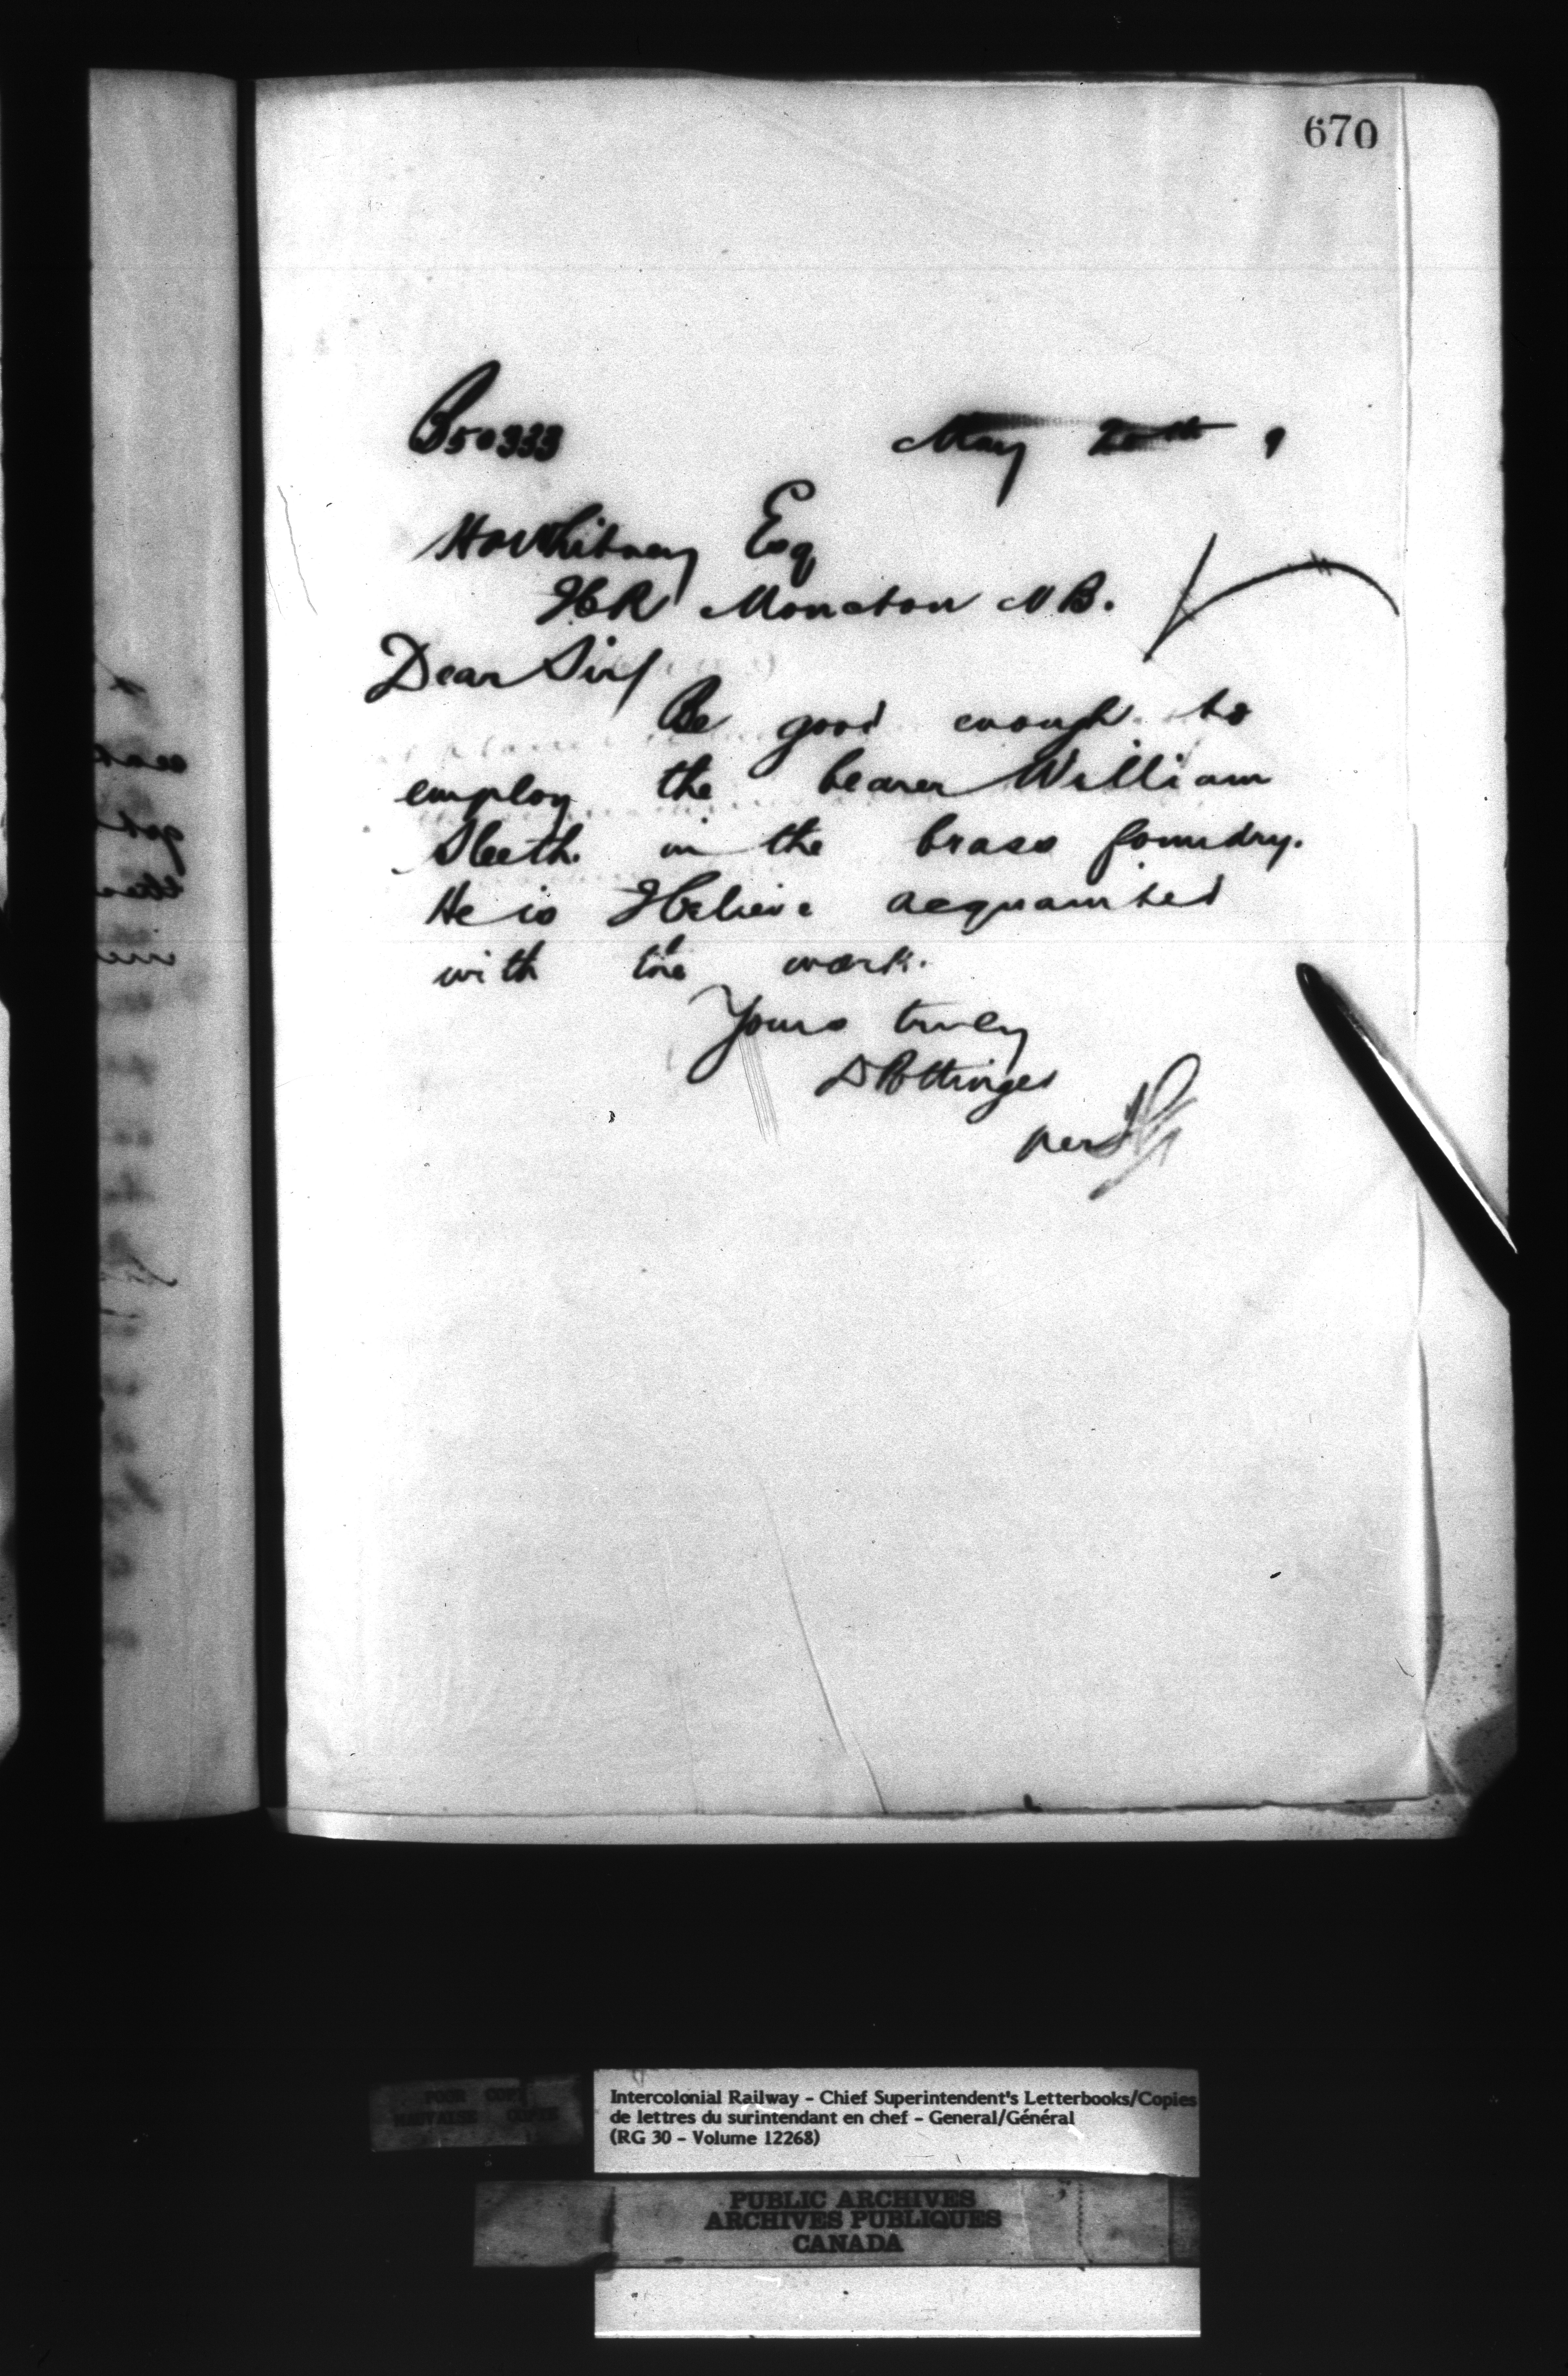 670
B50333 May 20th 9
H A Whitney Esq
ICR Moncton NB.
Dear Sir/
Be good enough to
employ the bearer William
Sleeth in the brass foundry.
He is I believe acquainted
with the work.
Yours truly
D Pottinger
per
POOR COPY
MAUVAISE COPIE
Intercolonial Railway - Chief Superintendent's Letterbooks/Copies
de lettres du surintendant en chef - General/Général
(RG 30 - Volume 12268)
PUBLIC ARCHIVES
ARCHIVES PUBLIQUES
CANADA